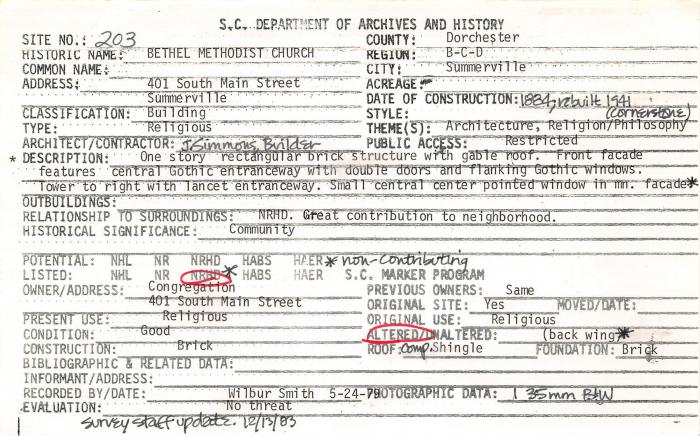 S.C. DEPARTMENT OF ARCHIVES AND HISTORY
SITE NO.: 203 COUNTY: Dorchester
HISTORIC NAME: BETHEL METHODIST CHURCH REGION: B-C-D
COMMON NAME: CITY: Summerville
ADDRESS: 401 South Main Street ACREAGE:
Summerville DATE OF CONSTRUCTION: 1884, rebuilt 1941
CLASSIFICATION: Building STYLE: (cornerstone)
TYPE: Religious THEME(S): Architecture, Religion/Philosophy
ARCHITECT/CONTRACTOR: J. Simmons, Builder PUBLIC ACCESS: Restricted
* DESCRIPTION: One story rectangular brick structure with gable roof. Front facade
features central Gothic entranceway with double doors and flanking Gothic windows.
Tower to right with lancet entranceway. Small central center pointed window in mn. facade*
OUTBUILDINGS:
RELATIONSHIP TO SURROUNDINGS: NRHD. Great contribution to neighborhood.
HISTORICAL SIGNIFICANCE: Community
POTENTIAL: NHL NR NRHD HABS HAER * non-contributing
LISTED: NHL NR NRHD * HABS HAER S.C. MARKER PROGRAM
OWNER/ADDRESS: Congregation PREVIOUS OWNERS: Same
401 South Main Street ORIGINAL SITE: Yes MOVED/DATE:
PRESENT USE: Religious ORIGINAL USE: Religious
CONDITION: Good ALTERED/UNALTERED: (back wing)*
CONSTRUCTION: Brick ROOF: comp. Shingle FOUNDATION: Brick
BIBLIOGRAPHIC & RELATED DATA:
INFORMANT/ADDRESS:
RECORDED BY/DATE: Wilbur Smith 5-24-79 PHOTOGRAPHIC DATA: 1 35mm B&W
EVALUATION: No threat
survey staff update. 12/13/83